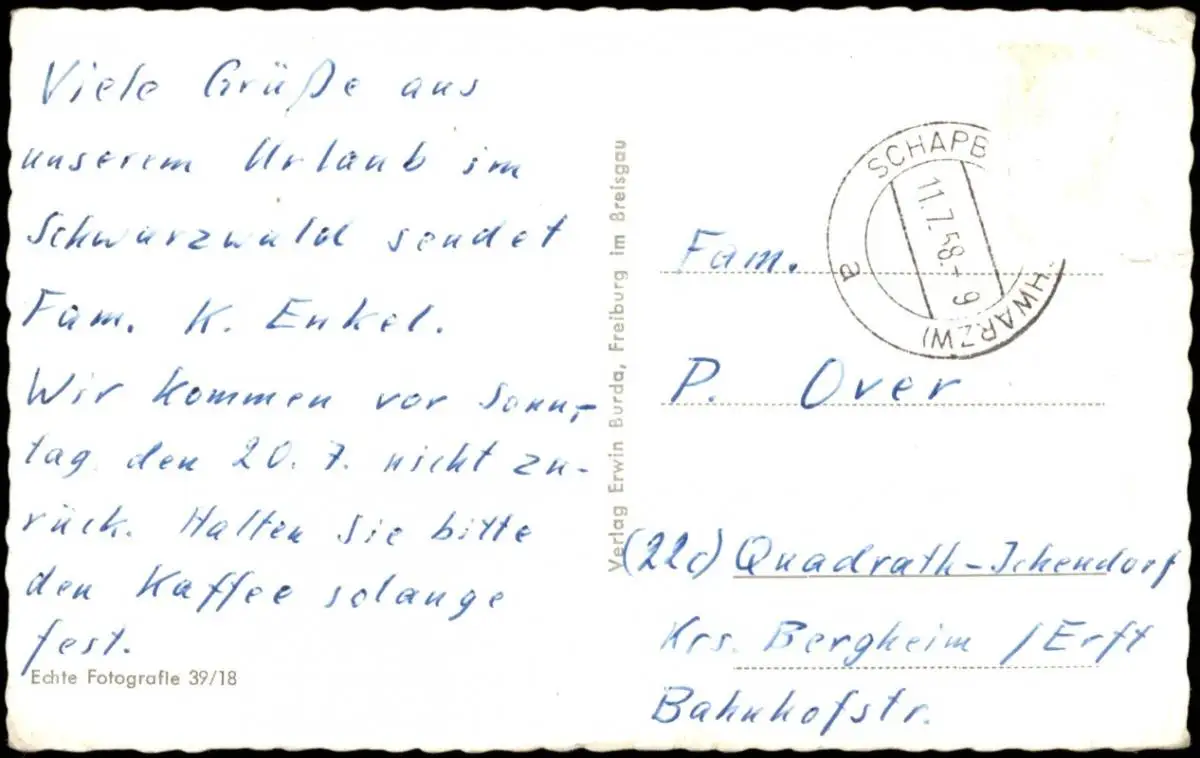 Viele Grüße aus
unserem Urlaub im
Schwarzwald sendet
Fam. K. Enkel.
Wir kommen vor Sonn-
tag den 20.7. nicht zu-
rück. Halten Sie bitte
den Kaffee solange
fest.
Echte Fotografie 39/18
Verlag Erwin Burda, Freiburg im Breisgau
SCHAPB
11.7.58.-9
a
HWARZW
Fam.
P. Over
(22c) Quadrath-Ichendorf
Krs. Bergheim / Erft
Bahnhofstr.